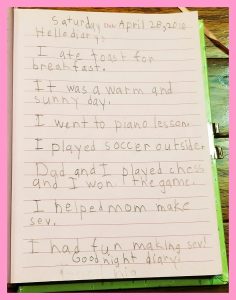 Saturday April 28, 2018
Hello diary:
I ate toast for
breakfast.
It was a warm and
sunny day.
I went to piano lesson.
I played soccer outside.
Dad and I played chess
and I won the game.
I helped mom make
sev.
I had fun making sev!
Good night diary!